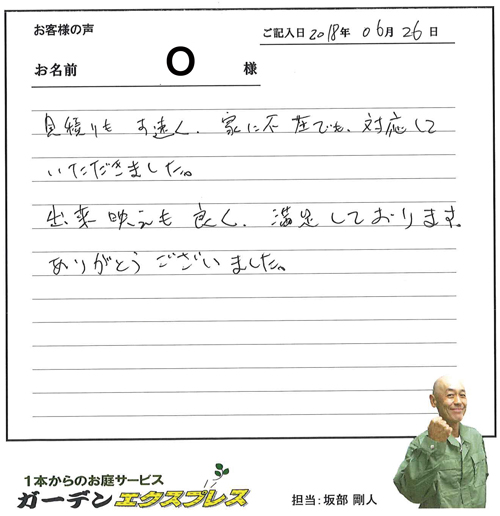 お客様の声
ご記入日 2018年 06月 26日
お名前 O 様
見積りも 素速く、家に不在でも、対応して
いただきました。
出来映えも良く、満足しております。
ありがとうございました。
1本からのお庭サービス
ガーデンエクスプレス
担当:坂部 剛人